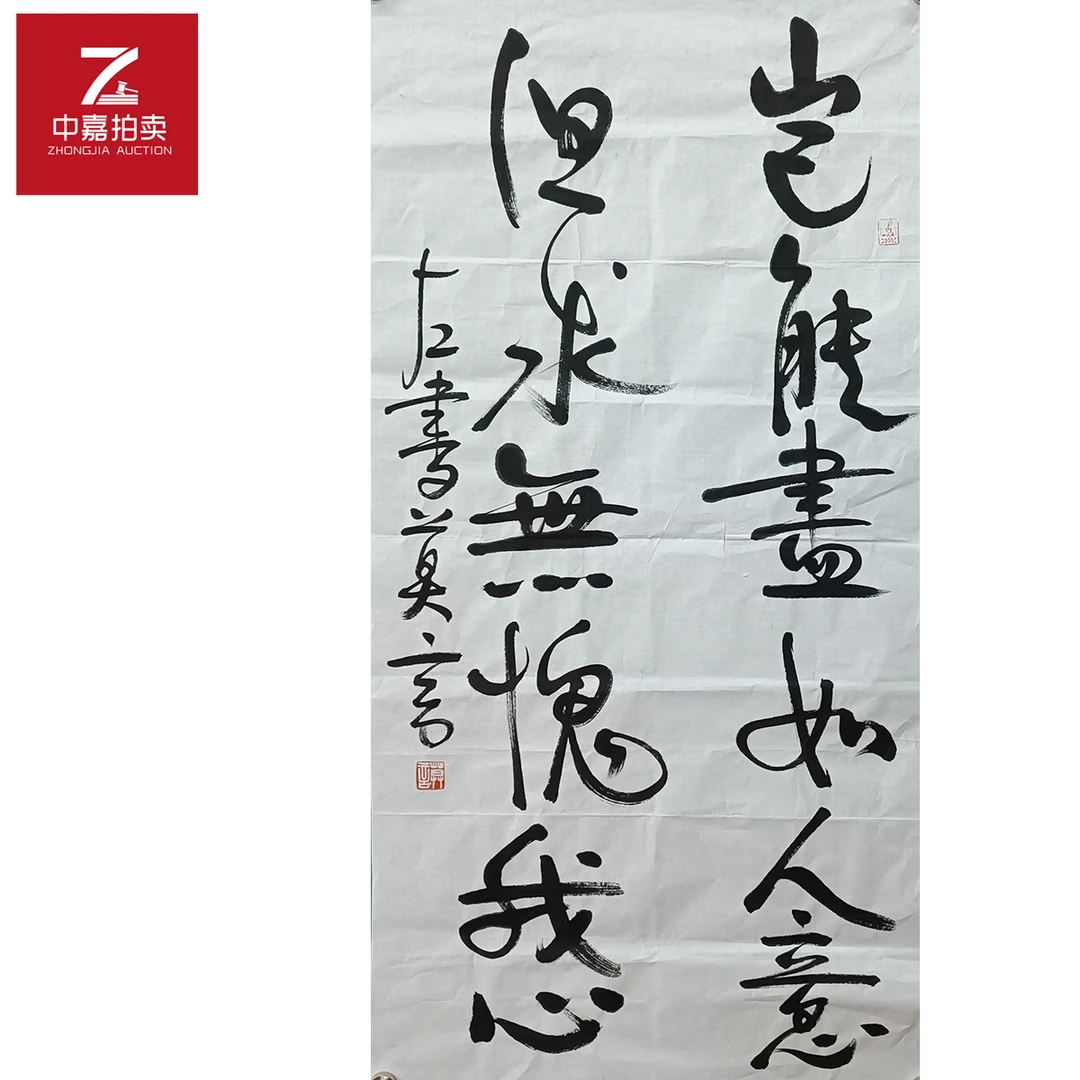 中嘉拍卖
ZHONGJIA AUCTION
岂能盡如人意
但求無愧我心
左書莫言
莫言